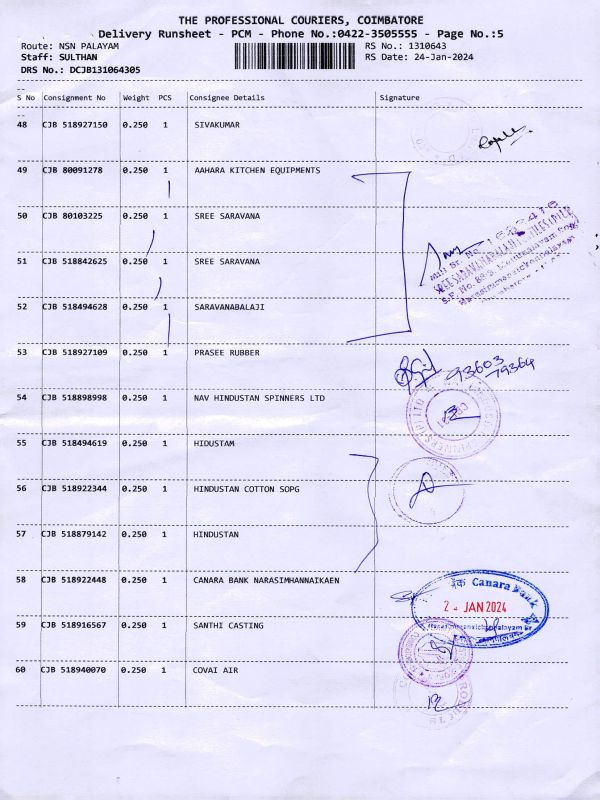 THE PROFESSIONAL COURIERS, COIMBATORE
Delivery Runsheet - PCM - Phone No.:0422-3505555 - Page No.:5
Route: NSN PALAYAM RS No.: 1310643
Staff: SULTHAN RS Date: 24-Jan-2024
DRS No.: DCJB131064305
S No Consignment No Weight PCS Consignee Details Signature
48 CJB 518927150 0.250 1 SIVAKUMAR
49 CJB 80091278 0.250 1 AAHARA KITCHEN EQUIPMENTS
50 CJB 80103225 0.250 1 SREE SARAVANA
51 CJB 518842625 0.250 1 SREE SARAVANA
52 CJB 518494628 0.250 1 SARAVANABALAJI
53 CJB 518927109 0.250 1 PRASEE RUBBER
93603
79364
54 CJB 518898998 0.250 1 NAV HINDUSTAN SPINNERS LTD
55 CJB 518494619 0.250 1 HIDUSTAM
56 CJB 518922344 0.250 1 HINDUSTAN COTTON SOPG
57 CJB 518879142 0.250 1 HINDUSTAN
58 CJB 518922448 0.250 1 CANARA BANK NARASIMHANNAIKAEN
Canara Bank
2 JAN 2024
59 CJB 518916567 0.250 1 SANTHI CASTING
60 CJB 518940070 0.250 1 COVAI AIR